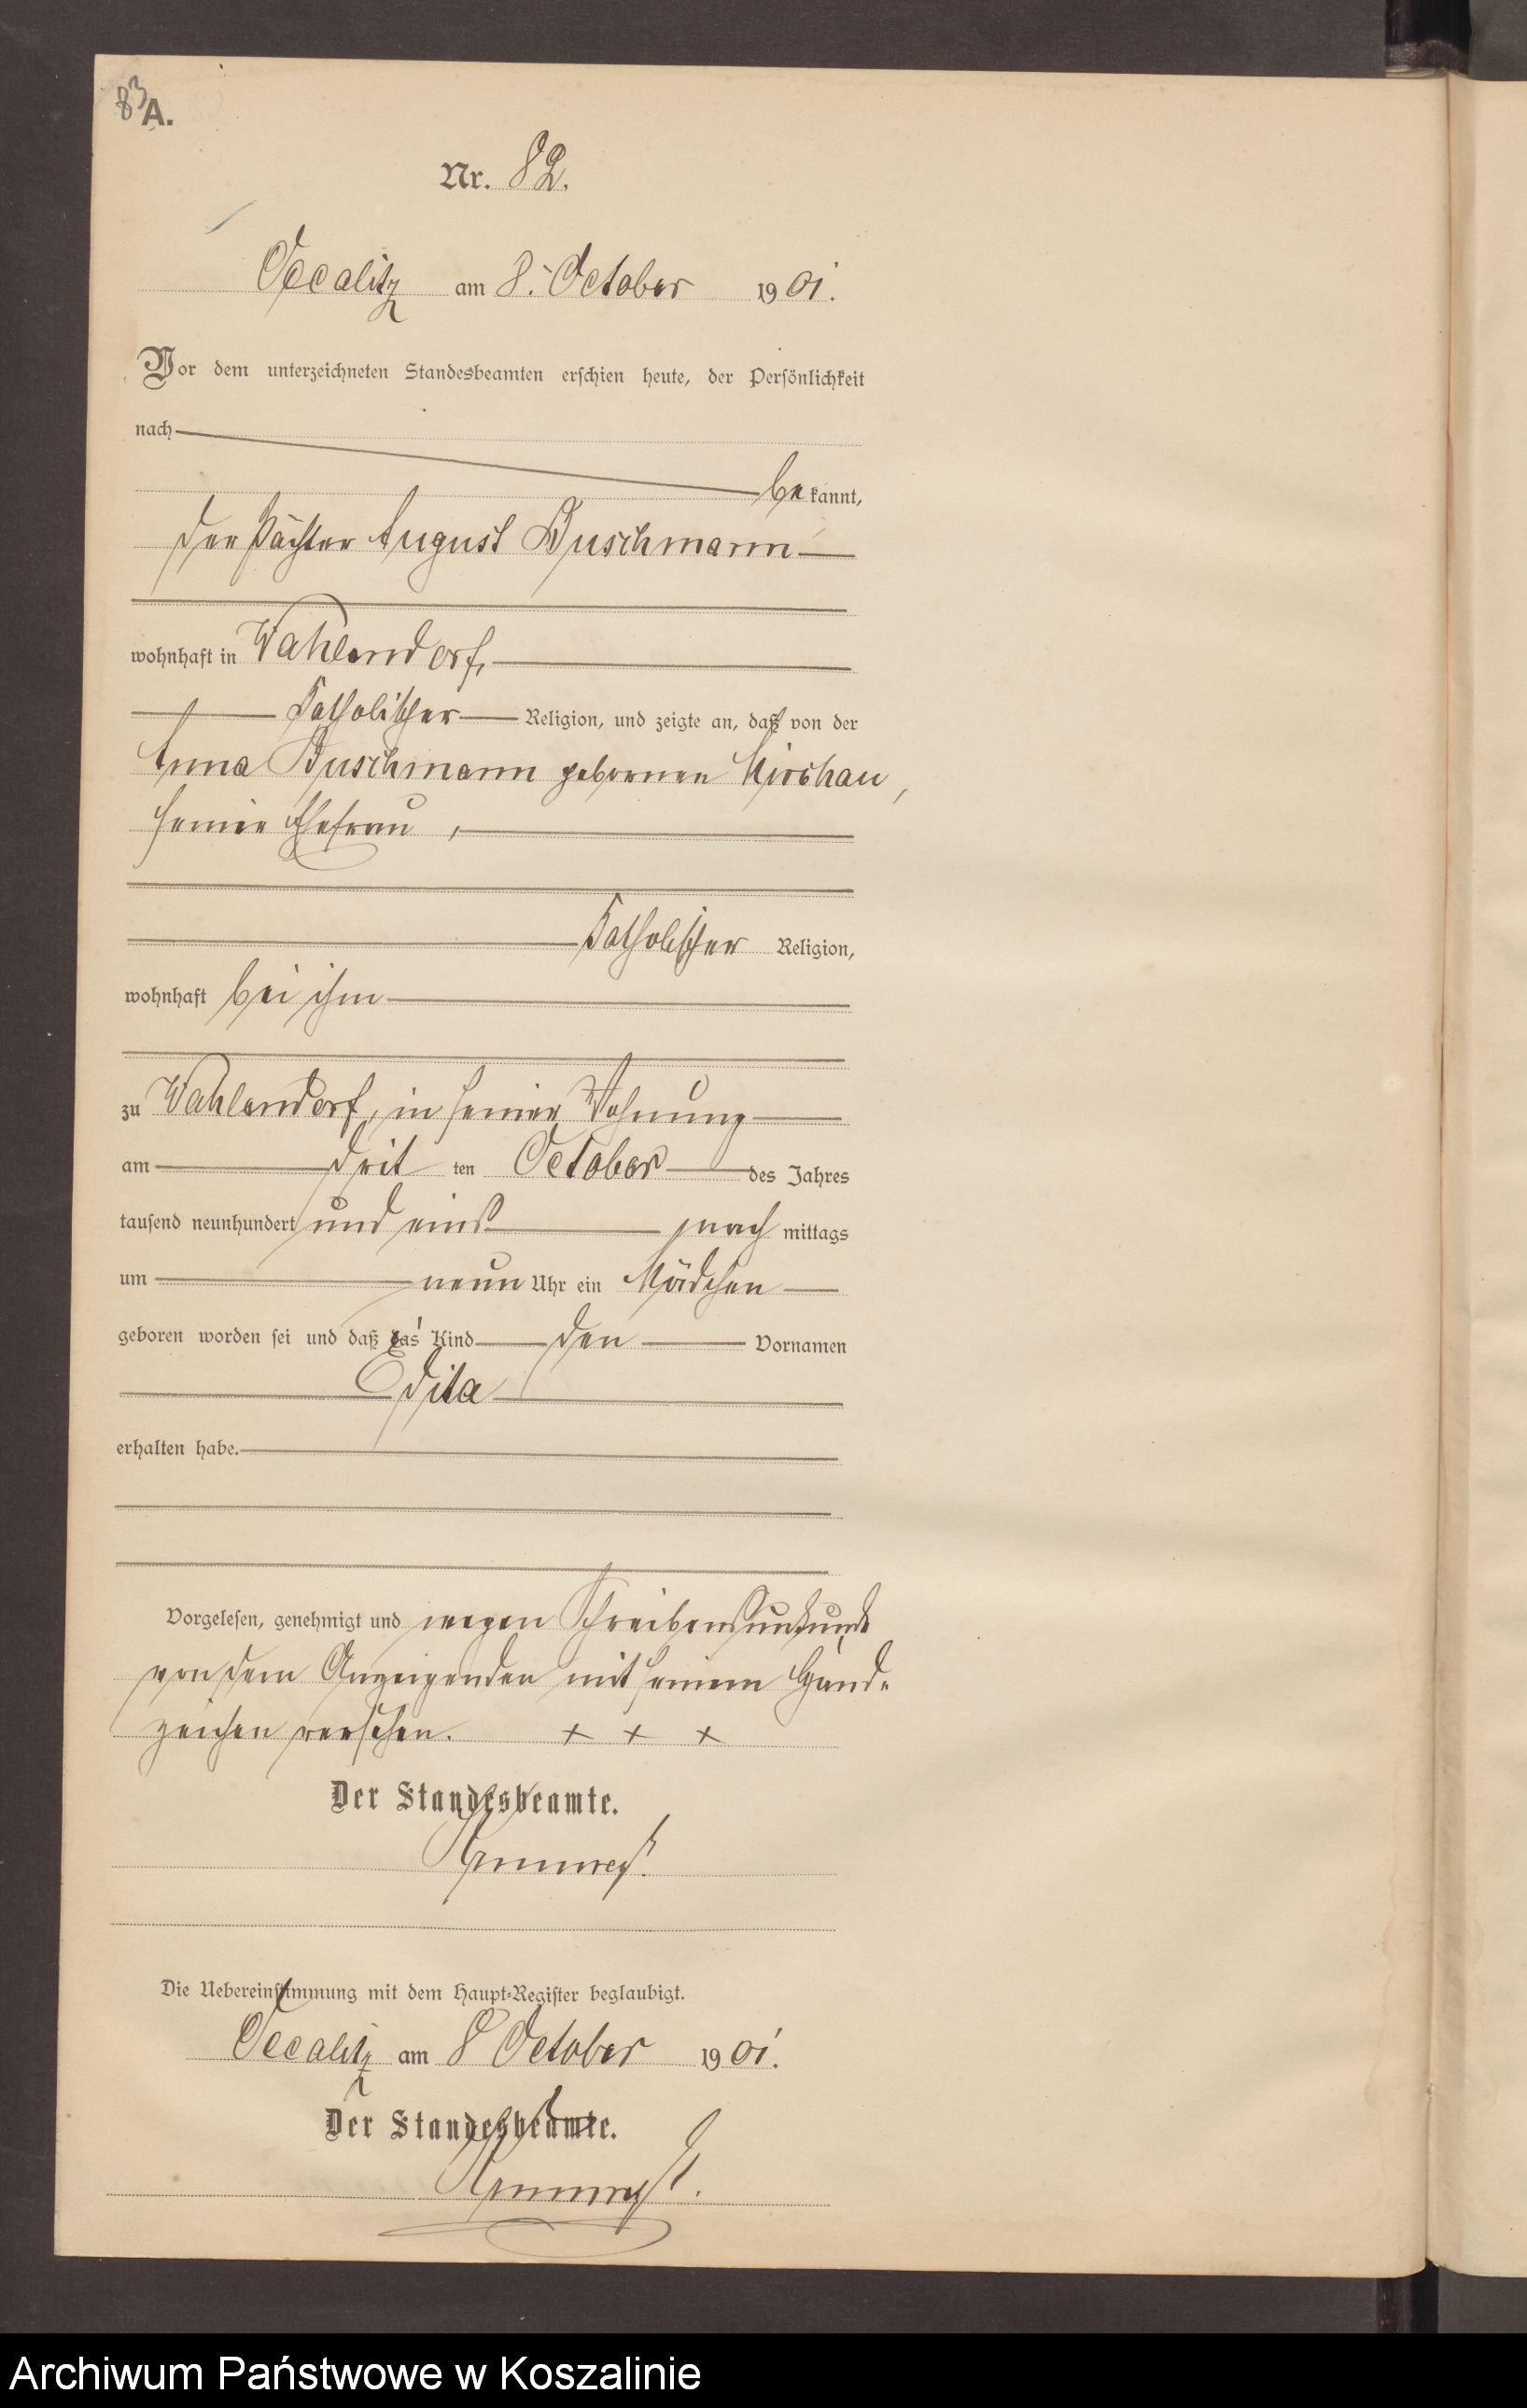 83
A.
Nr. 82.
Occalitz am 8. October 1901.
Vor dem unterzeichneten Standesbeamten erschien heute, der Persönlichkeit
nach
bekannt,
der Pächter August Buschmann
wohnhaft in Wahlendorf,
katholischer Religion, und zeigte an, daß von der
Anna Buschmann gebornen Kirchau,
seiner Ehefrau,
katholischer Religion,
wohnhaft bei ihm
zu Wahlendorf, in seiner Wohnung
am dritten October des Jahres
tausend neunhundert und eins nachmittags
um neun Uhr ein Mädchen
geboren worden sei und daß das Kind den Vornamen
Edita
erhalten habe.
Vorgelesen, genehmigt und wegen Schreibensunkunde
von dem Anzeigenden mit seinem Hand-
zeichen versehen. + + +
Der Standesbeamte.
Die Uebereinstimmung mit dem Haupt-Register beglaubigt.
Occalitz am 8 October 1901.
Der Standesbeamte.
Archiwum Państwowe w Koszalinie